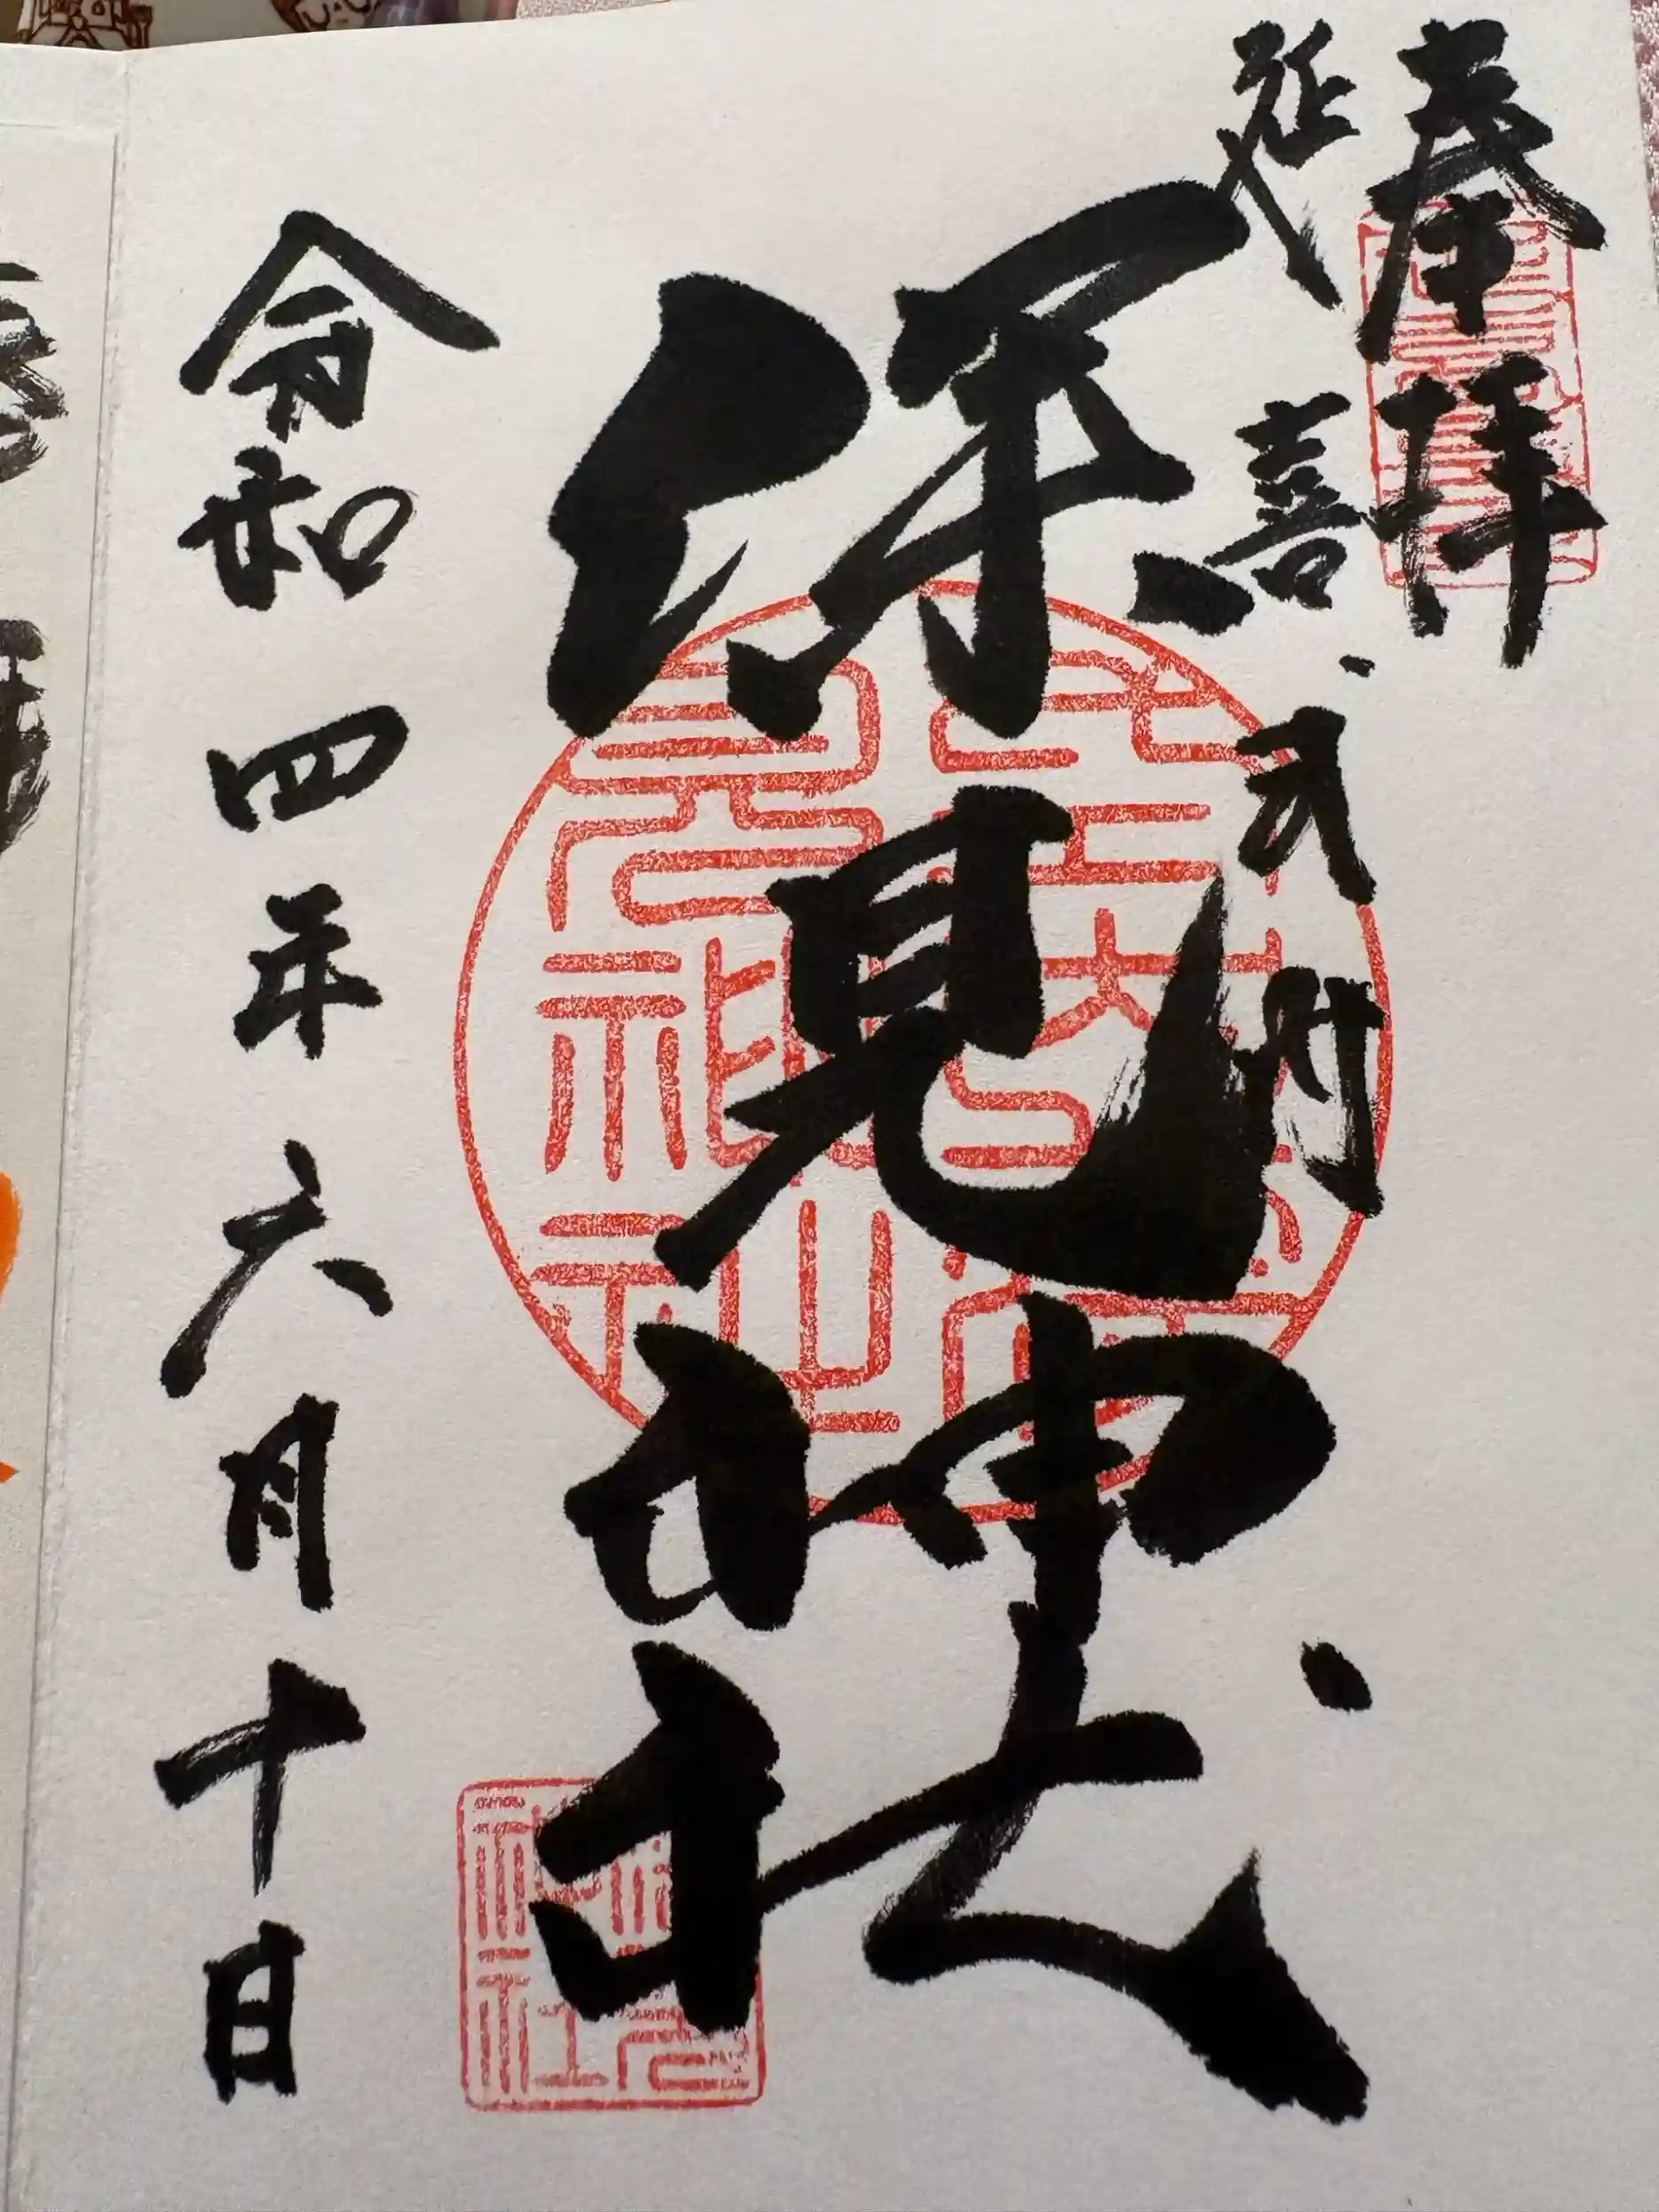 奉拝
延喜式内
深見神社
令和四年六月十日